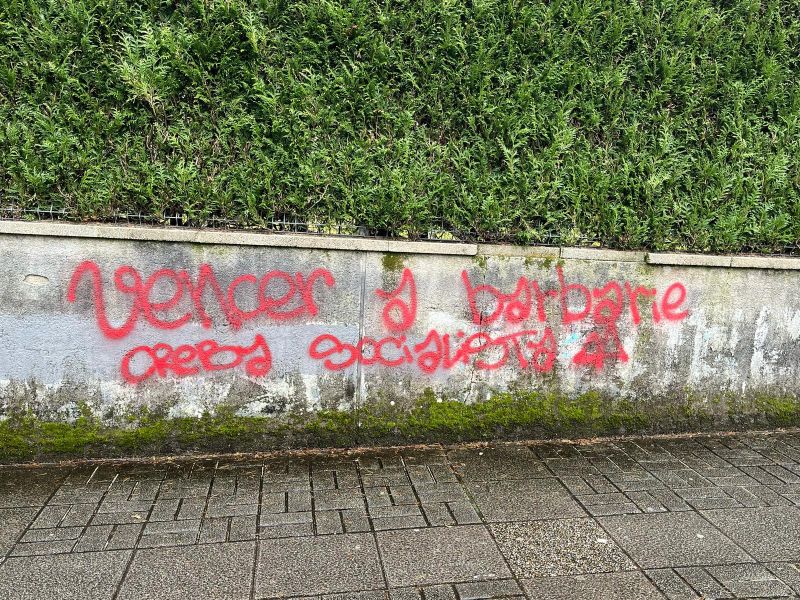 Vencer a barbarie
creba socialista